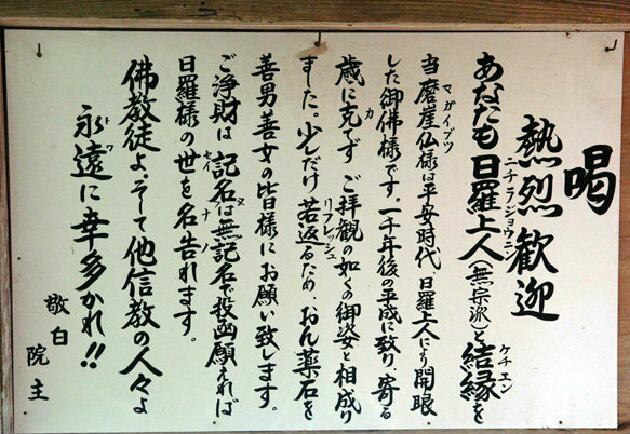 喝
熱烈歓迎
あなたも日羅上人(無宗派)と結縁を
ニチラジョウニン
ケチエン
当磨崖仏様は平安時代日羅上人により開眼
マガイブツ
した御佛様です。一千年後の平成に致り、寄る
歳に克てず ご拝観の如くの御姿と相成り
カ
ました。少しだけ若返るため、おん薬石を
リフレッシュ
善男善女の皆様にお願い致します。
ご浄財は 記名は無記名で投函願えれば
日羅様の世を名告れます。
セイ
ナノ
佛教徒よ、そして他信教の人々よ
永遠に幸多かれ!!
トワ
敬白
院主